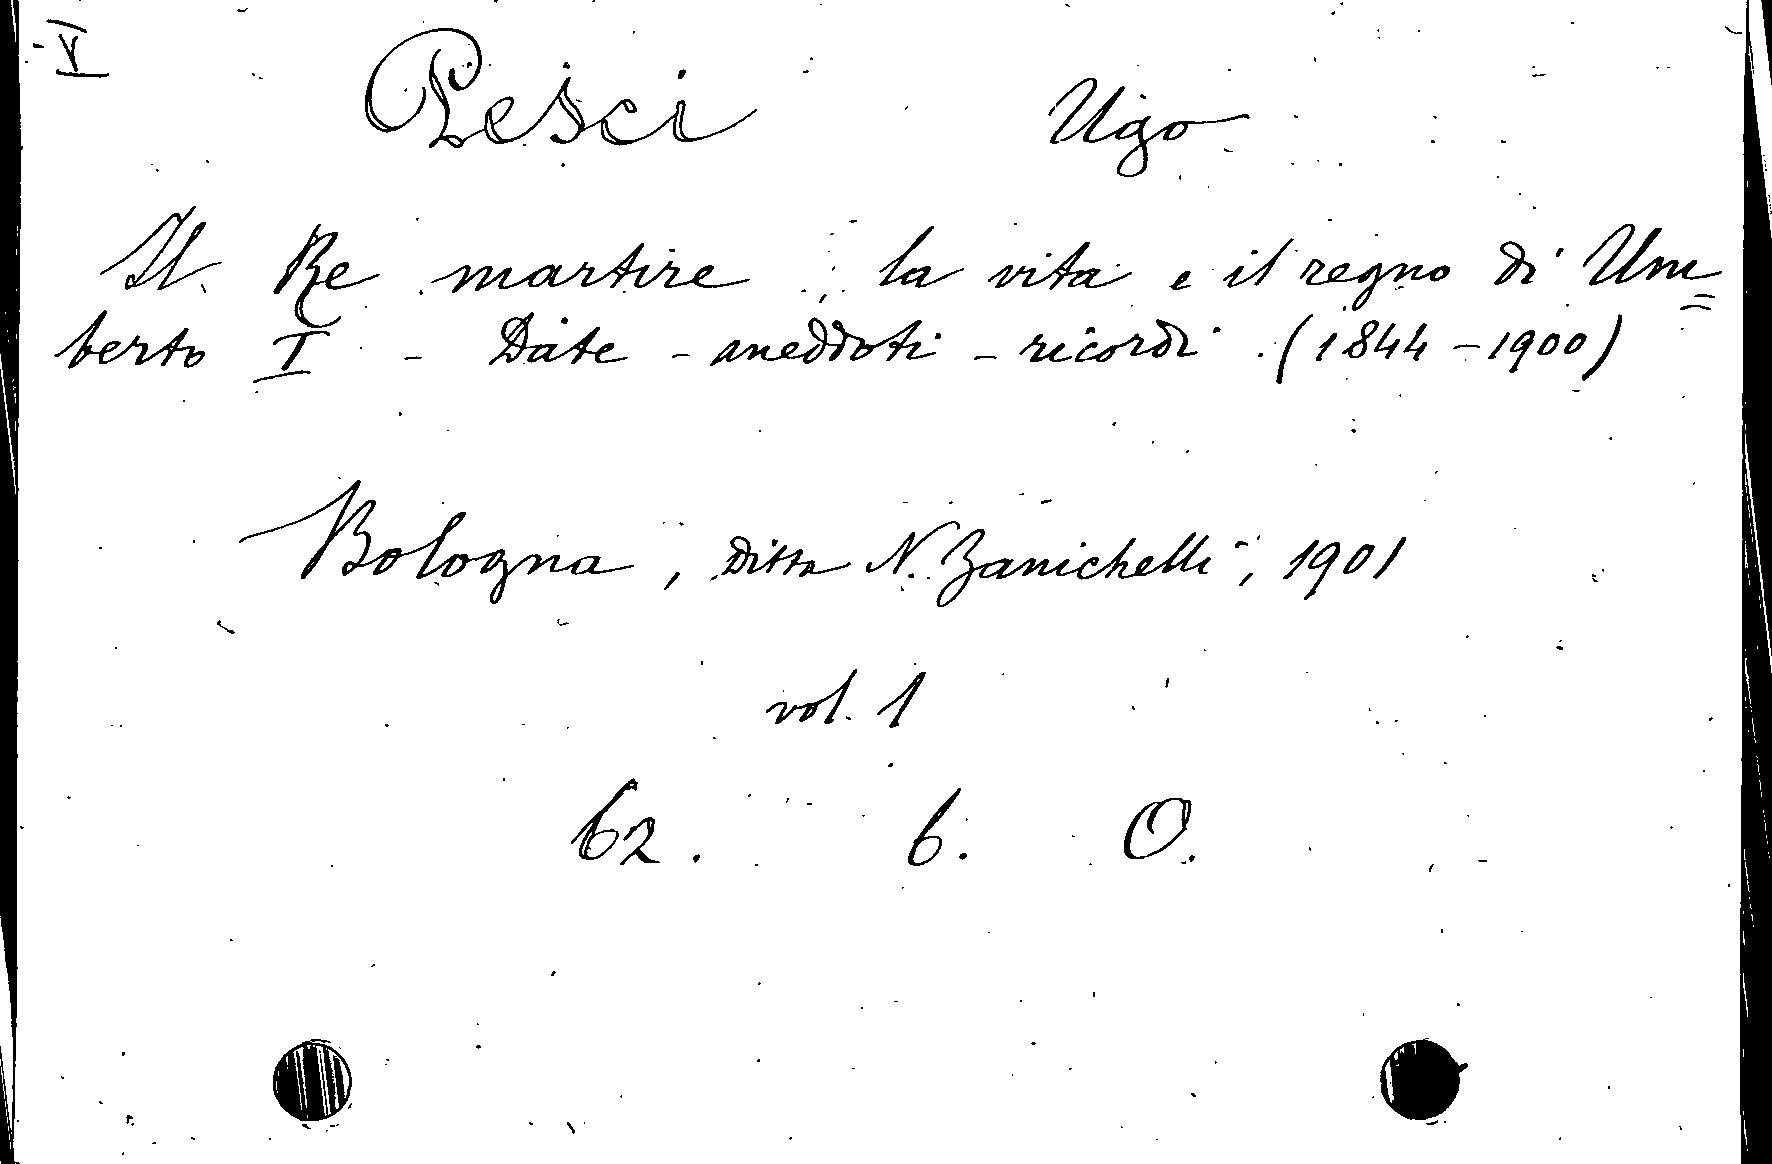 V
Pesci Ugo
Il Re martire, la vita e il regno di Um=
berto I - Date - aneddoti - ricordi (1844-1900)
Bologna, Ditta N. Zanichelli, 1901
vol. 1
62. 6. O.